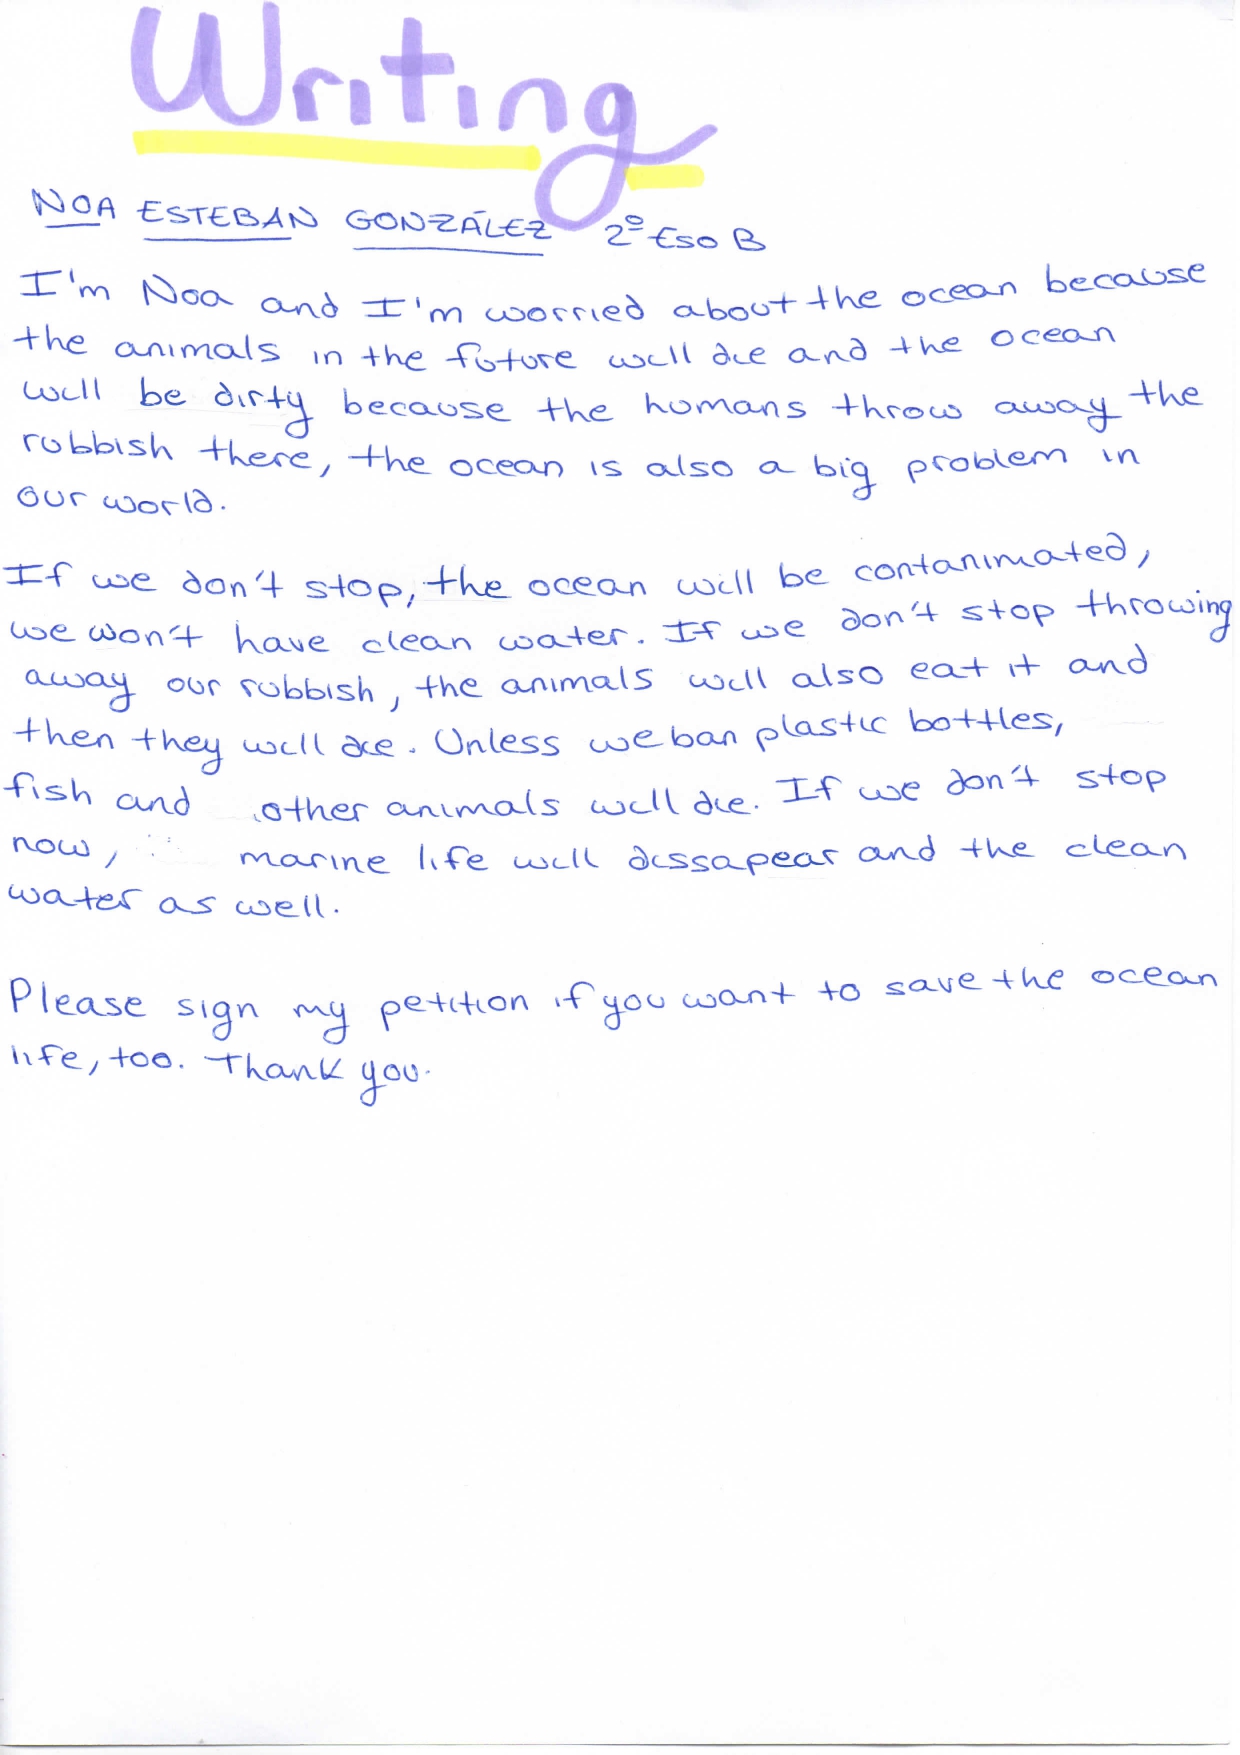 Writing
NOA ESTEBAN GONZÁLEZ 2º ESO B
I'm Noa and I'm worried about the ocean because
the animals in the future will die and the ocean
will be dirty because the humans throw away the
rubbish there, the ocean is also a big problem in
our world.
If we don't stop, the ocean will be contanimated,
we won't have clean water. If we don't stop throwing
away our rubbish, the animals will also eat it and
then they will die. Unless we ban plastic bottles,
fish and other animals will die. If we don't stop
now, marine life will dissapear and the clean
water as well.
Please sign my petition if you want to save the ocean
life, too. Thank you.